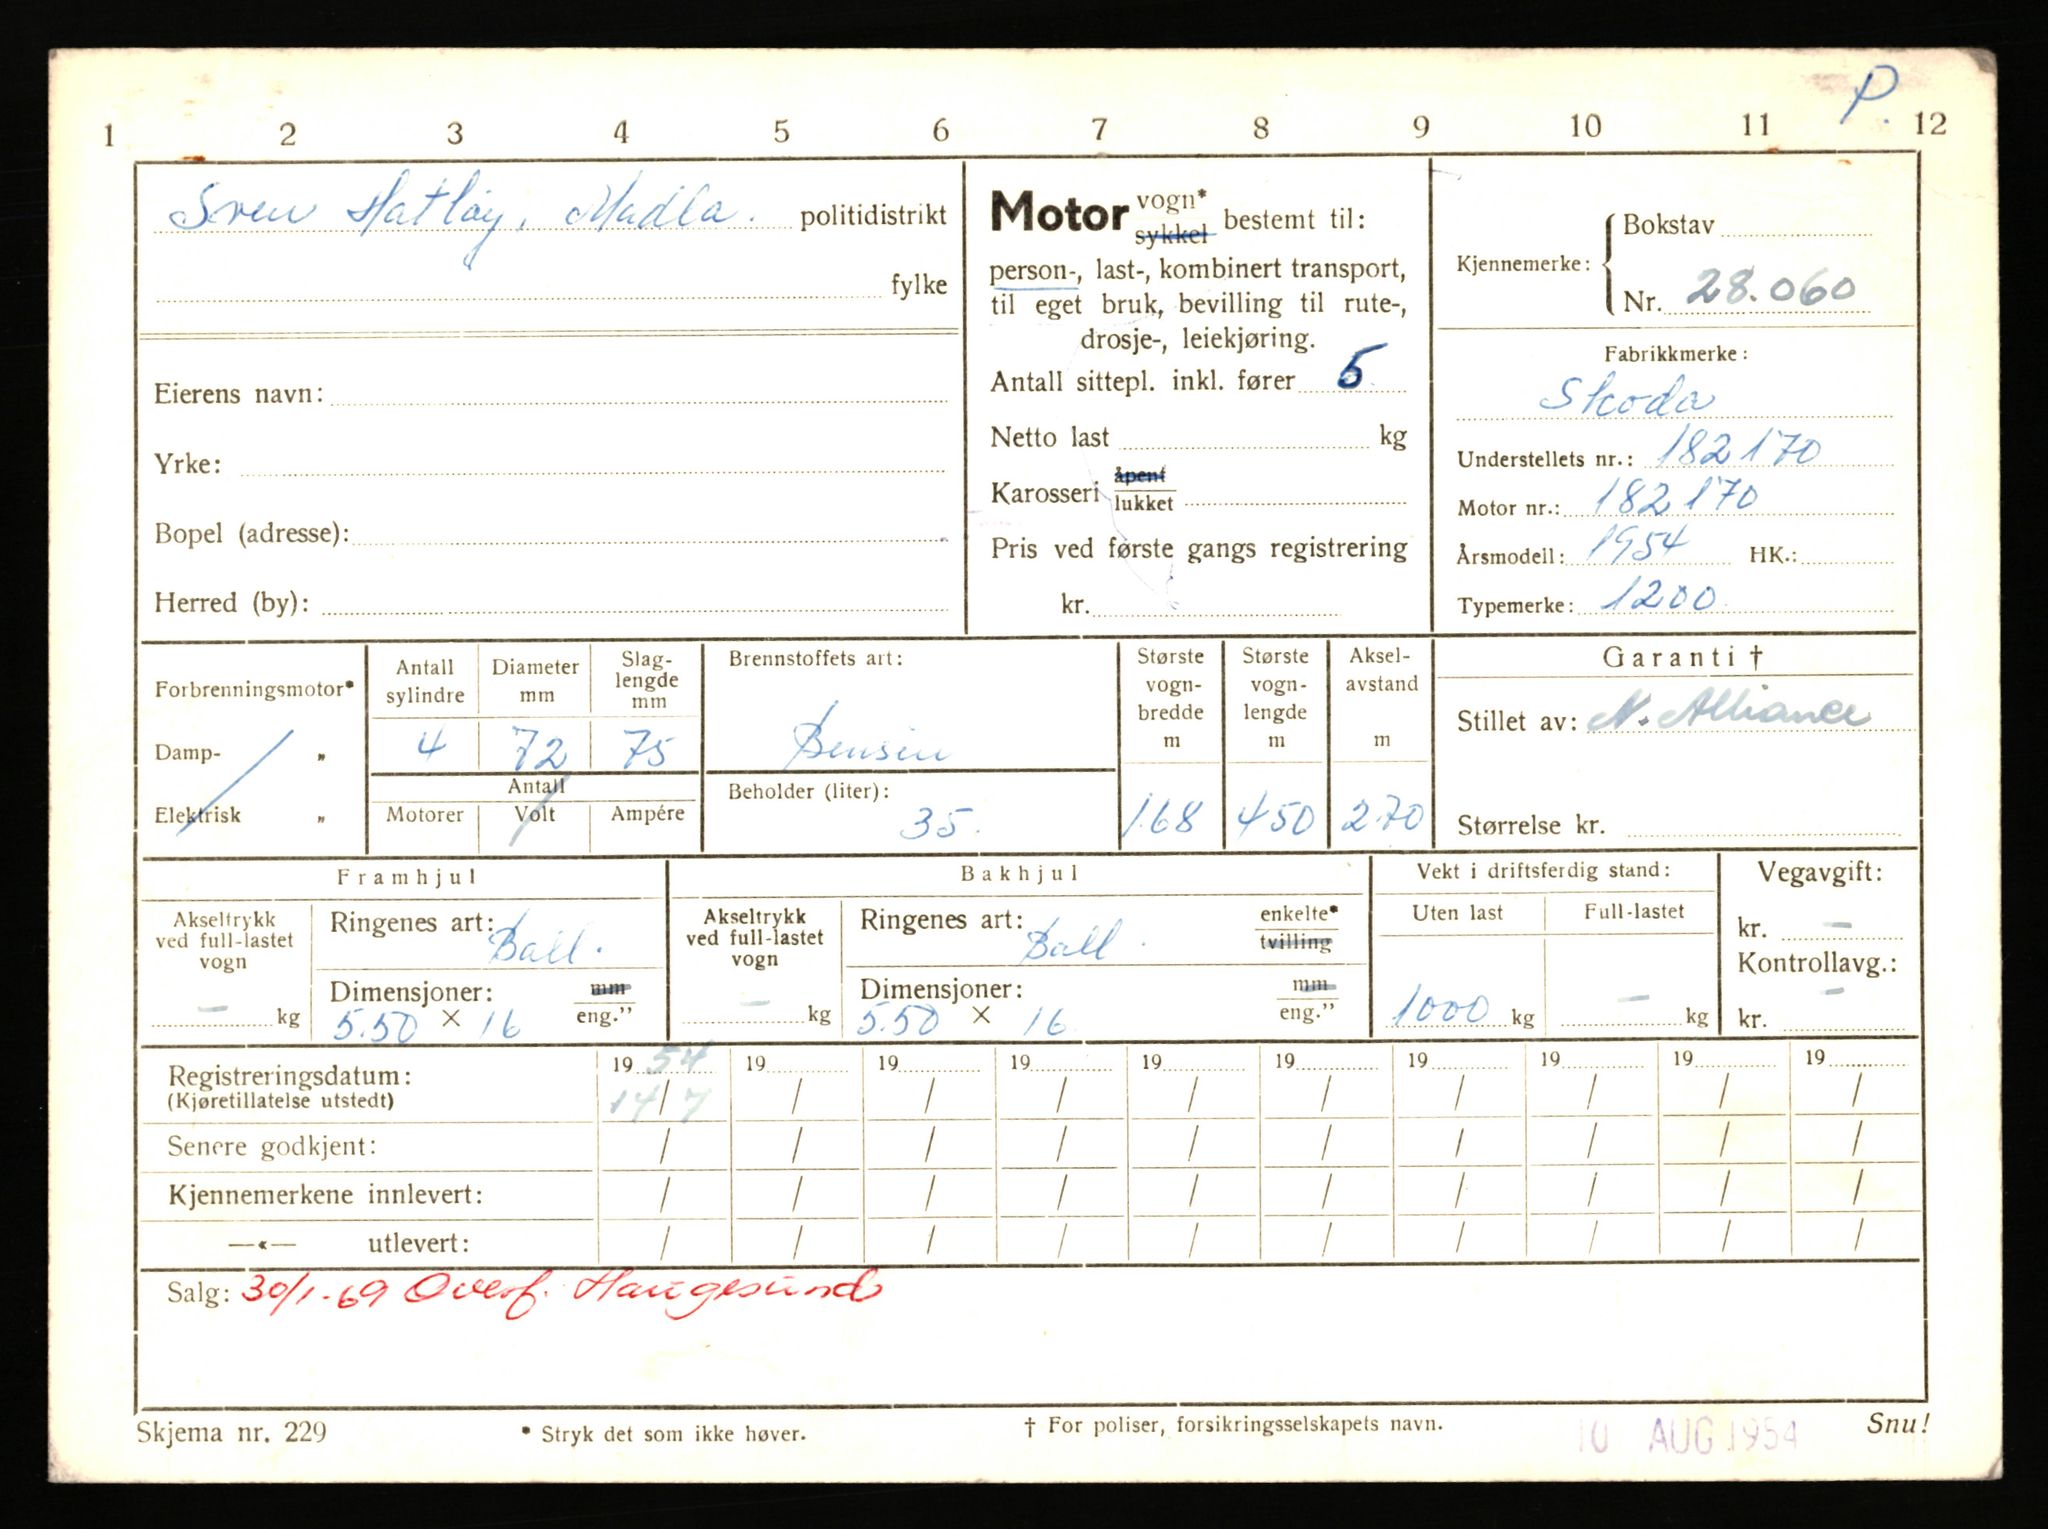 P.
1 2 3 4 5 6 7 8 9 10 11 12
Sven Hatløy, Madla. politidistrikt
fylke
Eierens navn:
Yrke:
Bopel (adresse):
Herred (by):
Motor vogn* sykkel bestemt til:
person-, last-, kombinert transport,
til eget bruk, bevilling til rute-,
drosje-, leiekjøring.
Antall sittepl. inkl. fører 5
Netto last kg
Karosseri åpent lukket
Pris ved første gangs registrering
kr.
Kjennemerke: Bokstav
Nr. 28.060
Fabrikkmerke:
Skoda
Understellets nr.: 182170
Motor nr.: 182170
Årsmodell: 1954 HK.:
Typemerke: 1200
Forbrenningsmotor*
Damp- „
Elektrisk „
Antall sylindre
4
Diameter mm
72
Slag-
lengde
mm
75
Antall
Motorer Volt Ampére
Brennstoffets art:
Bensin
Beholder (liter):
35.
Største
vogn-
bredde
m
1.68
Største
vogn-
lengde
m
450
Aksel-
avstand
m
2.70
Garanti †
Stillet av: N. Alliance
Størrelse kr.
Framhjul
Akseltrykk
ved full-lastet
vogn
– kg
Ringenes art: Ball.
Dimensjoner: mm
5.50 × 16 eng.”
Bakhjul
Akseltrykk
ved full-lastet
vogn
– kg
Ringenes art: Ball. enkelte* tvilling
Dimensjoner: mm
5.50 × 16 eng.”
Vekt i driftsferdig stand:
Uten last Full-lastet
1000 kg – kg
Vegavgift:
kr. –
Kontrollavg.:
kr. –
Registreringsdatum: 19 54 19 19 19 19 19 19 19 19 19
(Kjøretillatelse utstedt) 14/7 / / / / / / / / /
Senere godkjent: / / / / / / / / / /
Kjennemerkene innlevert: / / / / / / / / / /
—«— utlevert: / / / / / / / / / /
Salg: 30/1-69 Overf. Haugesund
Skjema nr. 229 * Stryk det som ikke høver. † For poliser, forsikringsselskapets navn. 10 AUG 1954 Snu!